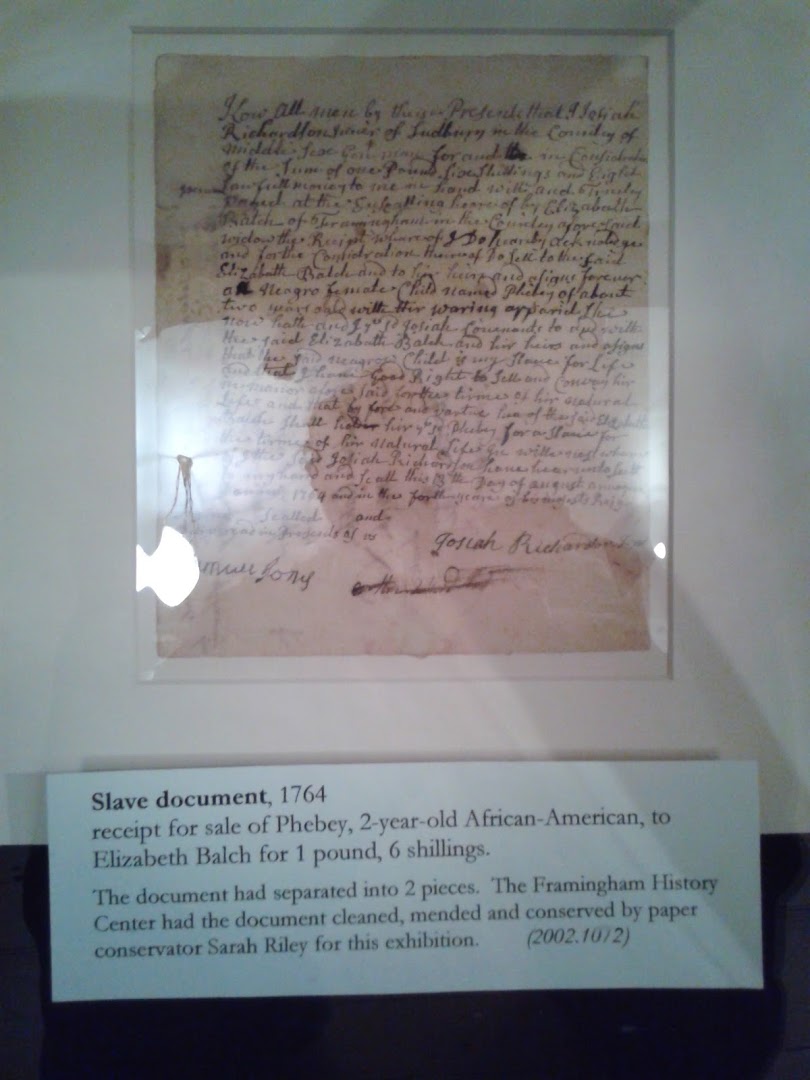 Know All men by these Presents that I Josiah
Richardson Juner of Sudbury in the County of
Middle Sex Gen man for and in Consideration
of the Sum of one Pound Six Shillings and Eight
Lawfull money to me in hand with and
Payed at the heare of by Elizabath
Balch of Framingham in the County afore said
widow the where of I Do
and for the Consideration there of to Sell to the said
Elizabath Balch and to hir heirs and asigns forever
a Neagro female Child Named Phebey of about
two years old with Hir waring apparid She
Now hath and I ye sd Josiah to and with
the said Elizabath Balch and hir heirs and asigns
that the said neagro Child is my Slave for Life
and that I have Good Right to Sell and Convay hir
in manor afore said for the tirme of hir Natural
Life and that by and of the said Elizabath
Balch Shall hir ye sd Phebey for a Slave for
the tirme of hir Natural Life In witness where
of I the said Josiah Richardson have
my hand and Seall this the Day of august
1764 and in the forth yeare of
Sealled and
in Presends of us
Josiah Richardson
Long
Slave document, 1764
receipt for sale of Phebey, 2-year-old African-American, to
Elizabeth Balch for 1 pound, 6 shillings.
The document had separated into 2 pieces. The Framingham History
Center had the document cleaned, mended and conserved by paper
conservator Sarah Riley for this exhibition. (2002.1072)